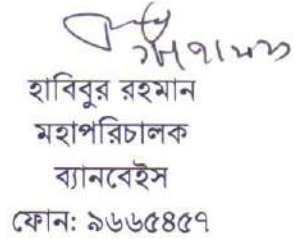 হাবিবুর রহমান
মহাপরিচালক
ব্যানবেইস
ফোন: ৯৬৬৫৪৫৭